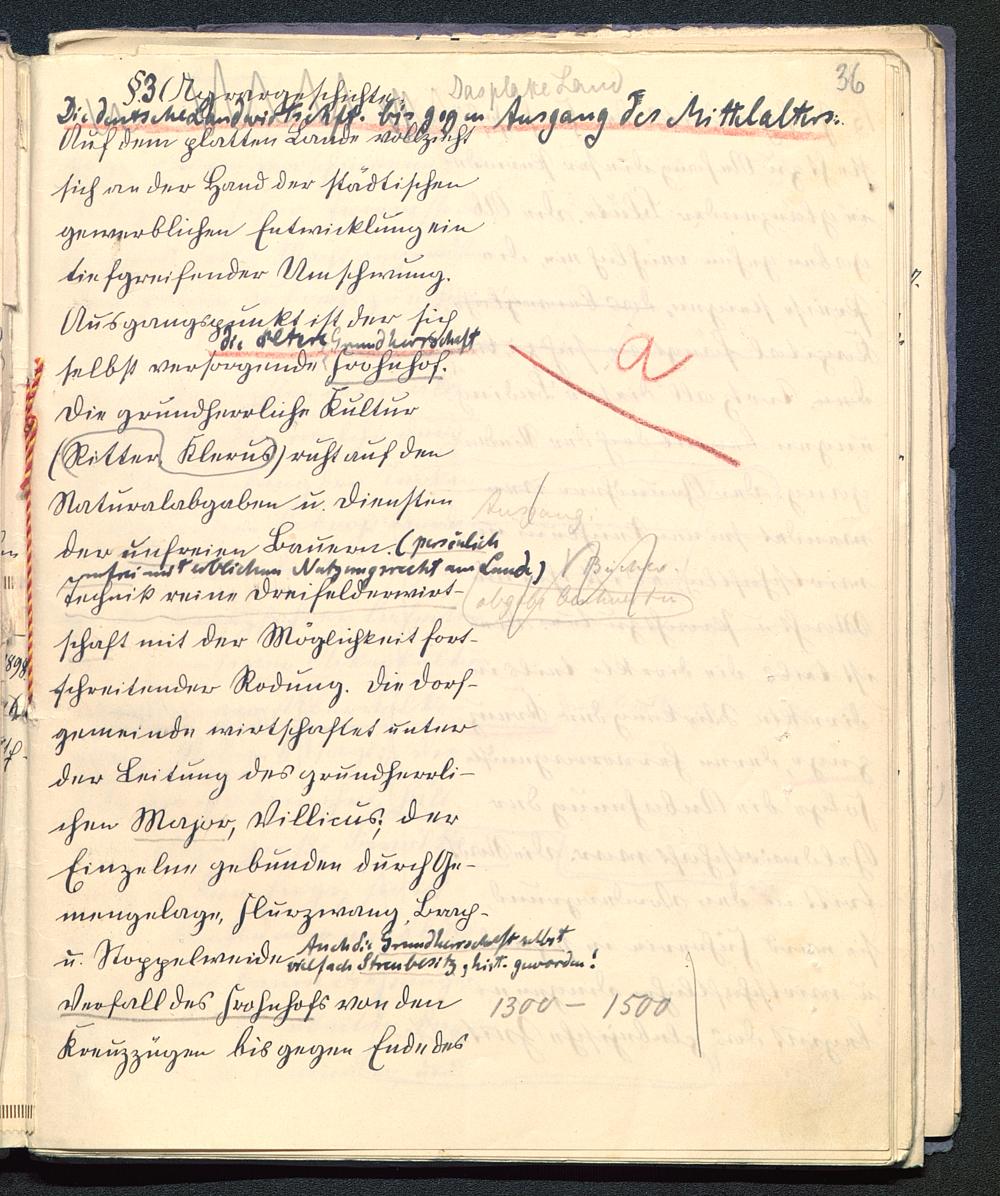 36
§3 (Agrargeschichte:
Das platte Land
Die deutsche Landwirtschaft bis gegen Ausgang des Mittelalters:
Auf dem platten Lande vollzieht
sich an der Hand der städtischen
gewerblichen Entwicklung ein
tiefgreifender Umschwung.
Ausgangspunkt ist der sich
die ältere Grundherrschaft
selbst versorgende Frohnhof.
a
Die grundherrliche Kultur
(Ritter, Klerus) ruht auf den
Naturalabgaben u. Diensten
der unfreien Bauern. (persönlich
unfrei mit erblichem Nutzungsrecht am Lande)
Technik reine Dreifelderwirt-
schaft mit der Möglichkeit fort-
schreitender Rodung. Die Dorf-
gemeinde wirtschaftet unter
der Leitung des grundherrli-
chen Major, Villicus, der
Einzelne gebunden durch Ge-
mengelage, Flurzwang, Brach-
u. Stoppelweide. Auch die Grundherrschaft selbst
vielfach Streubesitz, hist. geworden!
Verfall des Frohnhofs von den 1300 – 1500
Kreuzzügen bis gegen Ende des